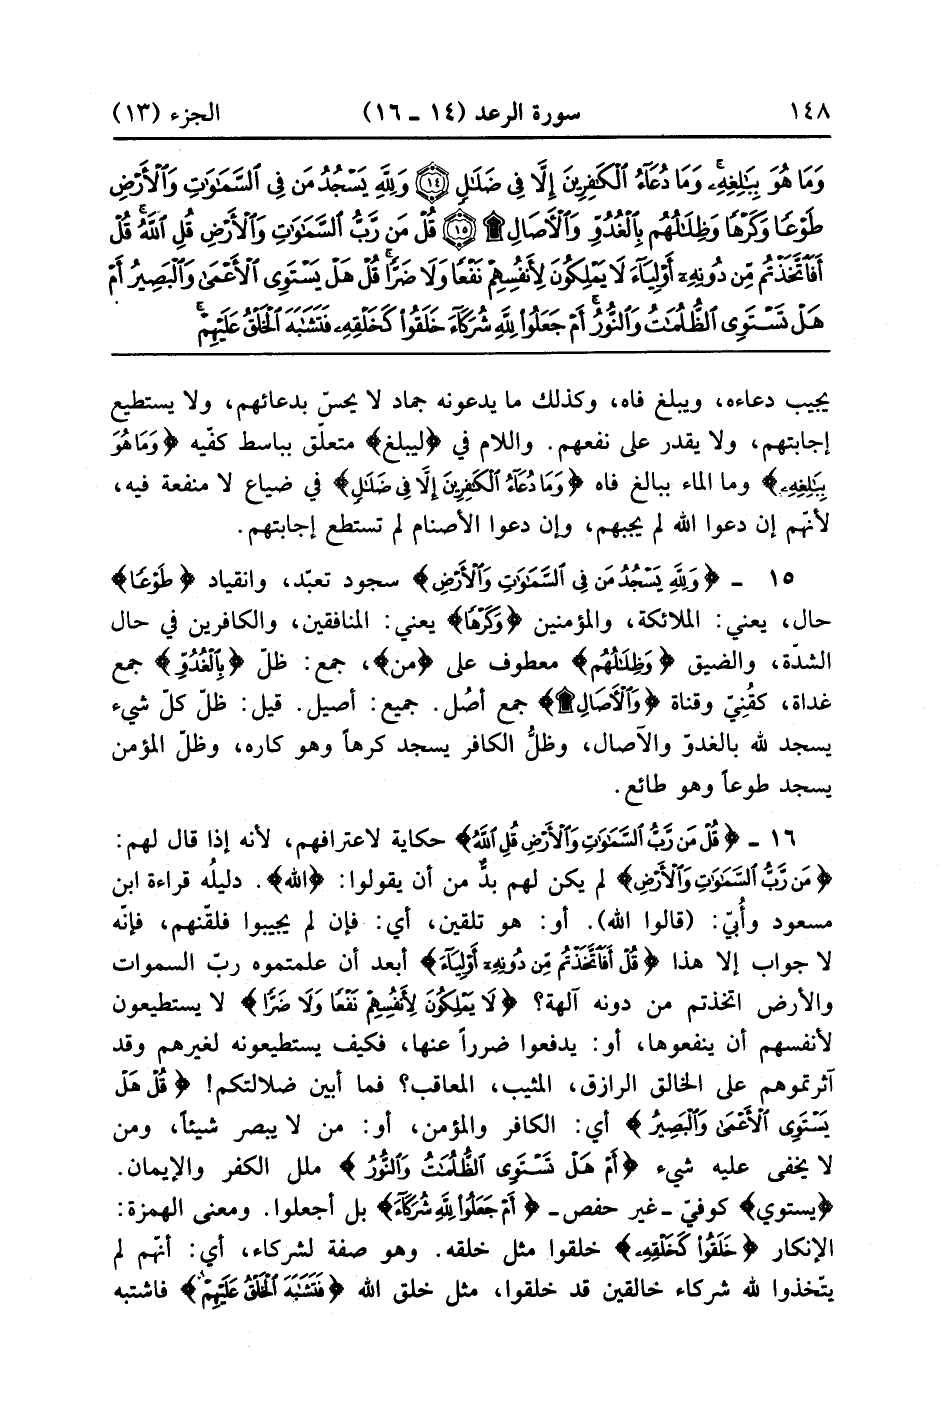 ١٤٨ سورة الرعد (١٤ - ١٦) الجزء (١٣)
وَمَا هُوَ بِبَٰلِغِهِۦۚ وَمَا دُعَآءُ ٱلْكَٰفِرِينَ إِلَّا فِى ضَلَٰلٍ ۝١٤ وَلِلَّهِ يَسْجُدُ مَن فِى ٱلسَّمَٰوَٰتِ وَٱلْأَرْضِ
طَوْعًا وَكَرْهًا وَظِلَٰلُهُم بِٱلْغُدُوِّ وَٱلْأَصَالِ ۩ ۝١٥ قُلْ مَن رَّبُّ ٱلسَّمَٰوَٰتِ وَٱلْأَرْضِ قُلِ ٱللَّهُۚ قُلْ
أَفَٱتَّخَذْتُم مِّن دُونِهِۦٓ أَوْلِيَآءَ لَا يَمْلِكُونَ لِأَنفُسِهِمْ نَفْعًا وَلَا ضَرًّاۚ قُلْ هَلْ يَسْتَوِى ٱلْأَعْمَىٰ وَٱلْبَصِيرُ أَمْ
هَلْ تَسْتَوِى ٱلظُّلُمَٰتُ وَٱلنُّورُۗ أَمْ جَعَلُوا۟ لِلَّهِ شُرَكَآءَ خَلَقُوا۟ كَخَلْقِهِۦ فَتَشَٰبَهَ ٱلْخَلْقُ عَلَيْهِمْۚ
يجيب دعاءه، ويبلغ فاه، وكذلك ما يدعونه جماد لا يحسّ بدعائهم، ولا يستطيع
إجابتهم، ولا يقدر على نفعهم. واللام في ﴿ليبلغ﴾ متعلّق بباسط كفّيه ﴿وَمَا هُوَ
بِبَٰلِغِهِۦ﴾ وما الماء ببالغ فاه ﴿وَمَا دُعَآءُ ٱلْكَٰفِرِينَ إِلَّا فِى ضَلَٰلٍ﴾ في ضياع لا منفعة فيه،
لأنّهم إن دعوا الله لم يجبهم، وإن دعوا الأصنام لم تستطع إجابتهم.
١٥ - ﴿وَلِلَّهِ يَسْجُدُ مَن فِى ٱلسَّمَٰوَٰتِ وَٱلْأَرْضِ﴾ سجود تعبّد، وانقياد ﴿طَوْعًا﴾
حال، يعني: الملائكة، والمؤمنين ﴿وَكَرْهًا﴾ يعني: المنافقين، والكافرين في حال
الشدّة، والضيق ﴿وَظِلَٰلُهُم﴾ معطوف على ﴿من﴾، جمع: ظلّ ﴿بِٱلْغُدُوِّ﴾ جمع
غداة، كقُنِيّ وقناة ﴿وَٱلْأَصَالِ۩﴾ جمع أصُل. جميع: أصيل. قيل: ظلّ كلّ شيء
يسجد لله بالغدوّ والآصال، وظلُّ الكافر يسجد كرهاً وهو كاره، وظلّ المؤمن
يسجد طوعاً وهو طائع.
١٦ - ﴿قُلْ مَن رَّبُّ ٱلسَّمَٰوَٰتِ وَٱلْأَرْضِ قُلِ ٱللَّهُ﴾ حكاية لاعترافهم، لأنه إذا قال لهم:
﴿مَن رَّبُّ ٱلسَّمَٰوَٰتِ وَٱلْأَرْضِ﴾ لم يكن لهم بدٌّ من أن يقولوا: ﴿الله﴾. دليلُه قراءة ابن
مسعود وأُبيّ: (قالوا الله). أو: هو تلقين، أي: فإن لم يجيبوا فلقّنهم، فإنّه
لا جواب إلا هذا ﴿قُلْ أَفَٱتَّخَذْتُم مِّن دُونِهِۦٓ أَوْلِيَآءَ﴾ أبعد أن علمتموه ربّ السموات
والأرض اتخذتم من دونه آلهة؟ ﴿لَا يَمْلِكُونَ لِأَنفُسِهِمْ نَفْعًا وَلَا ضَرًّا﴾ لا يستطيعون
لأنفسهم أن ينفعوها، أو: يدفعوا ضرراً عنها، فكيف يستطيعونه لغيرهم وقد
آثرتموهم على الخالق الرازق، المثيب، المعاقب؟ فما أبين ضلالتكم! ﴿قُلْ هَلْ
يَسْتَوِى ٱلْأَعْمَىٰ وَٱلْبَصِيرُ﴾ أي: الكافر والمؤمن، أو: من لا يبصر شيئاً، ومن
لا يخفى عليه شيء ﴿أَمْ هَلْ تَسْتَوِى ٱلظُّلُمَٰتُ وَٱلنُّورُ﴾ ملل الكفر والإيمان.
﴿يستوي﴾ كوفيّ -غير حفص- ﴿أَمْ جَعَلُوا۟ لِلَّهِ شُرَكَآءَ﴾ بل أجعلوا. ومعنى الهمزة:
الإنكار ﴿خَلَقُوا۟ كَخَلْقِهِۦ﴾ خلقوا مثل خلقه. وهو صفة لشركاء، أي: أنّهم لم
يتّخذوا لله شركاء خالقين قد خلقوا، مثل خلق الله ﴿فَتَشَٰبَهَ ٱلْخَلْقُ عَلَيْهِمْ﴾ فاشتبه